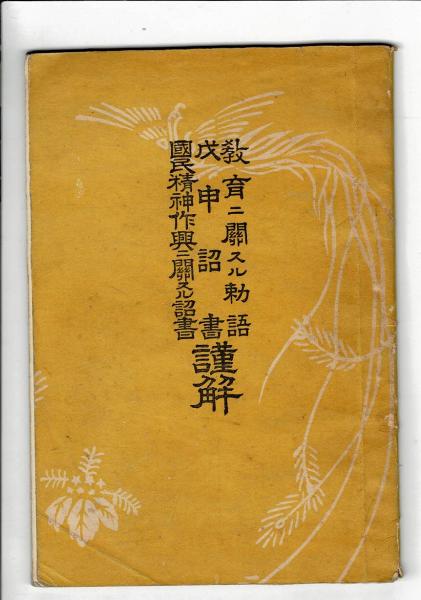 敎育ニ關スル勅語
戊申詔書
國民精神作興ニ關スル詔書
謹解